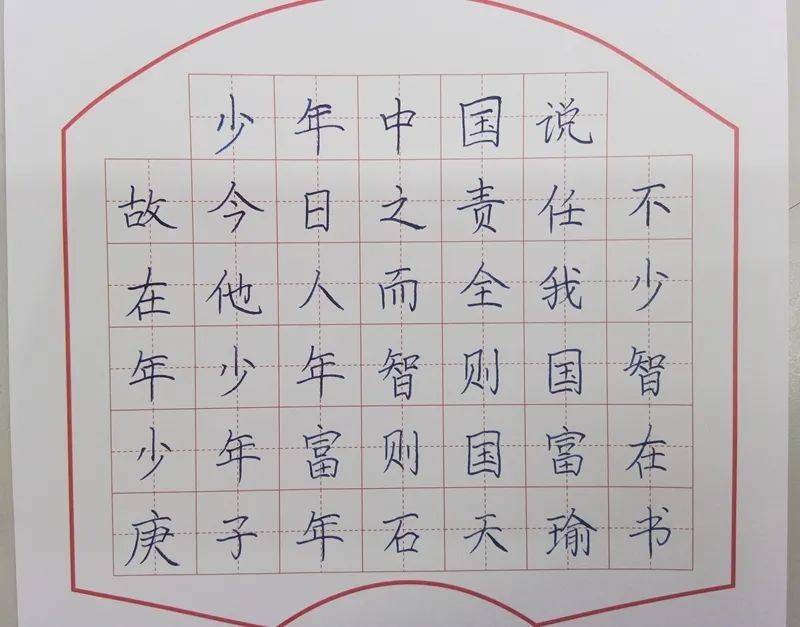 少年中国说
故今日之责任不
在他人而全我少
年少年智则国智
少年富则国富在
庚子年石天瑜书